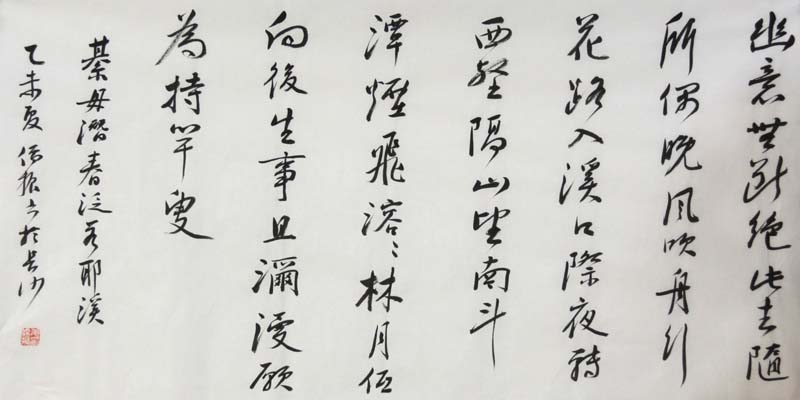 幽意無斷絕此去隨
所偶晚風吹舟行
花路入溪口際夜轉
西壑隔山望南斗
潭煙飛溶〻林月低
向後生事且瀰漫願
為持竿叟
綦毋潛春泛若耶溪
乙未夏於長沙